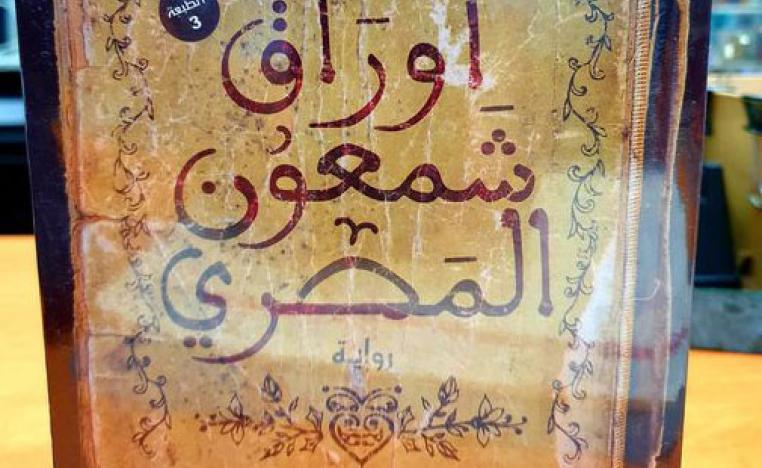 الطبعة
3
أوراق
شمعون
المصري
رواية